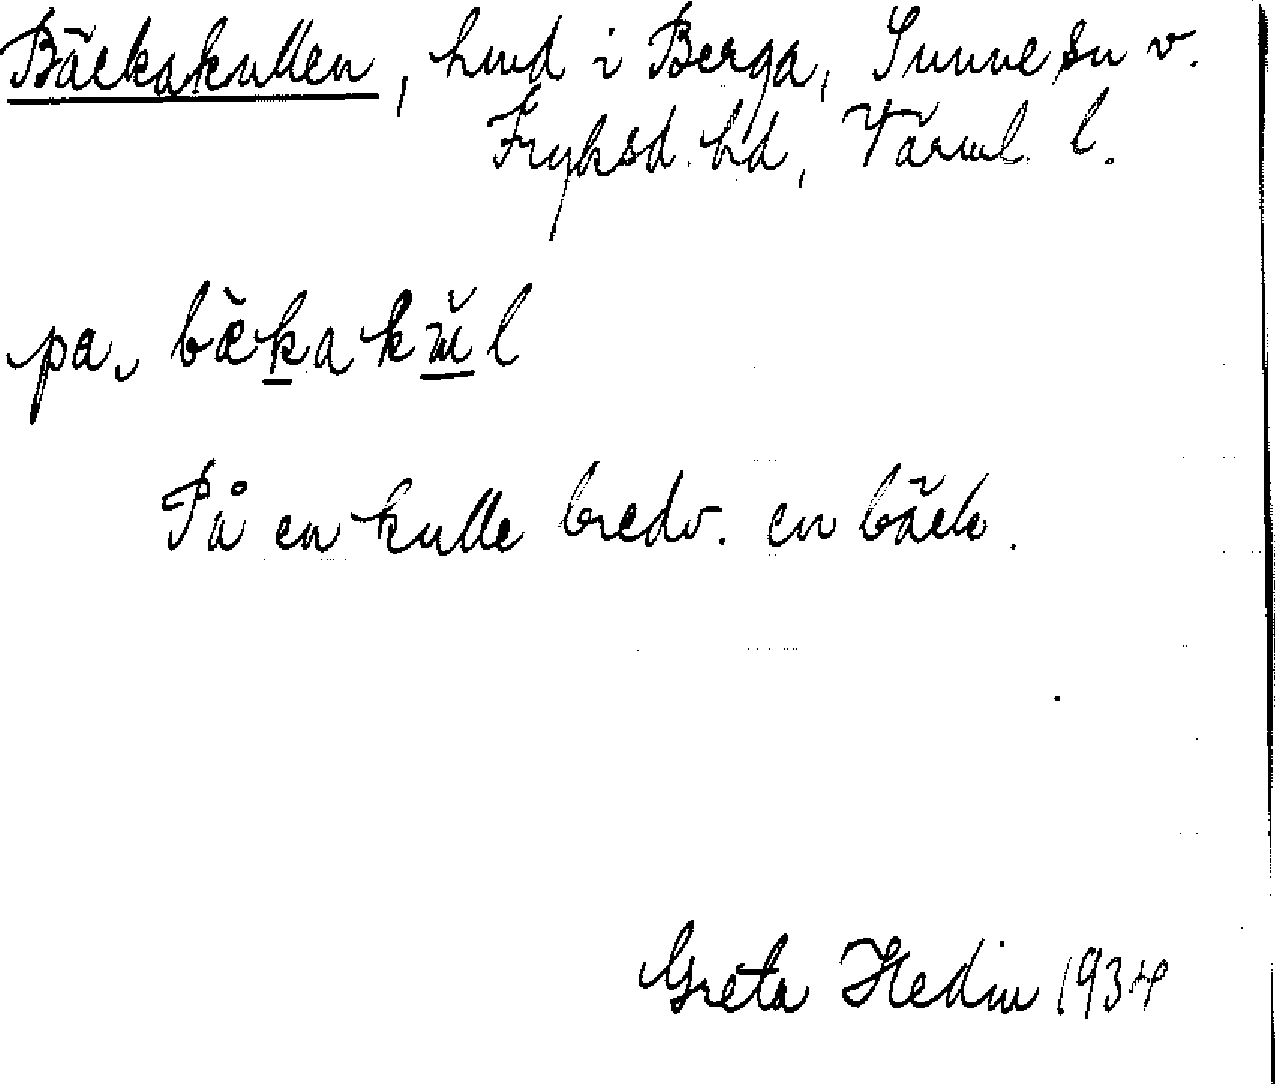 Bäckakullen, hmd i Berga, Sunne sn v.
Fryksd. hd, Värml. l.
pa, bæ̀kakŭl
På en kulle bredv. en bäck.
Greta Hedin 1934